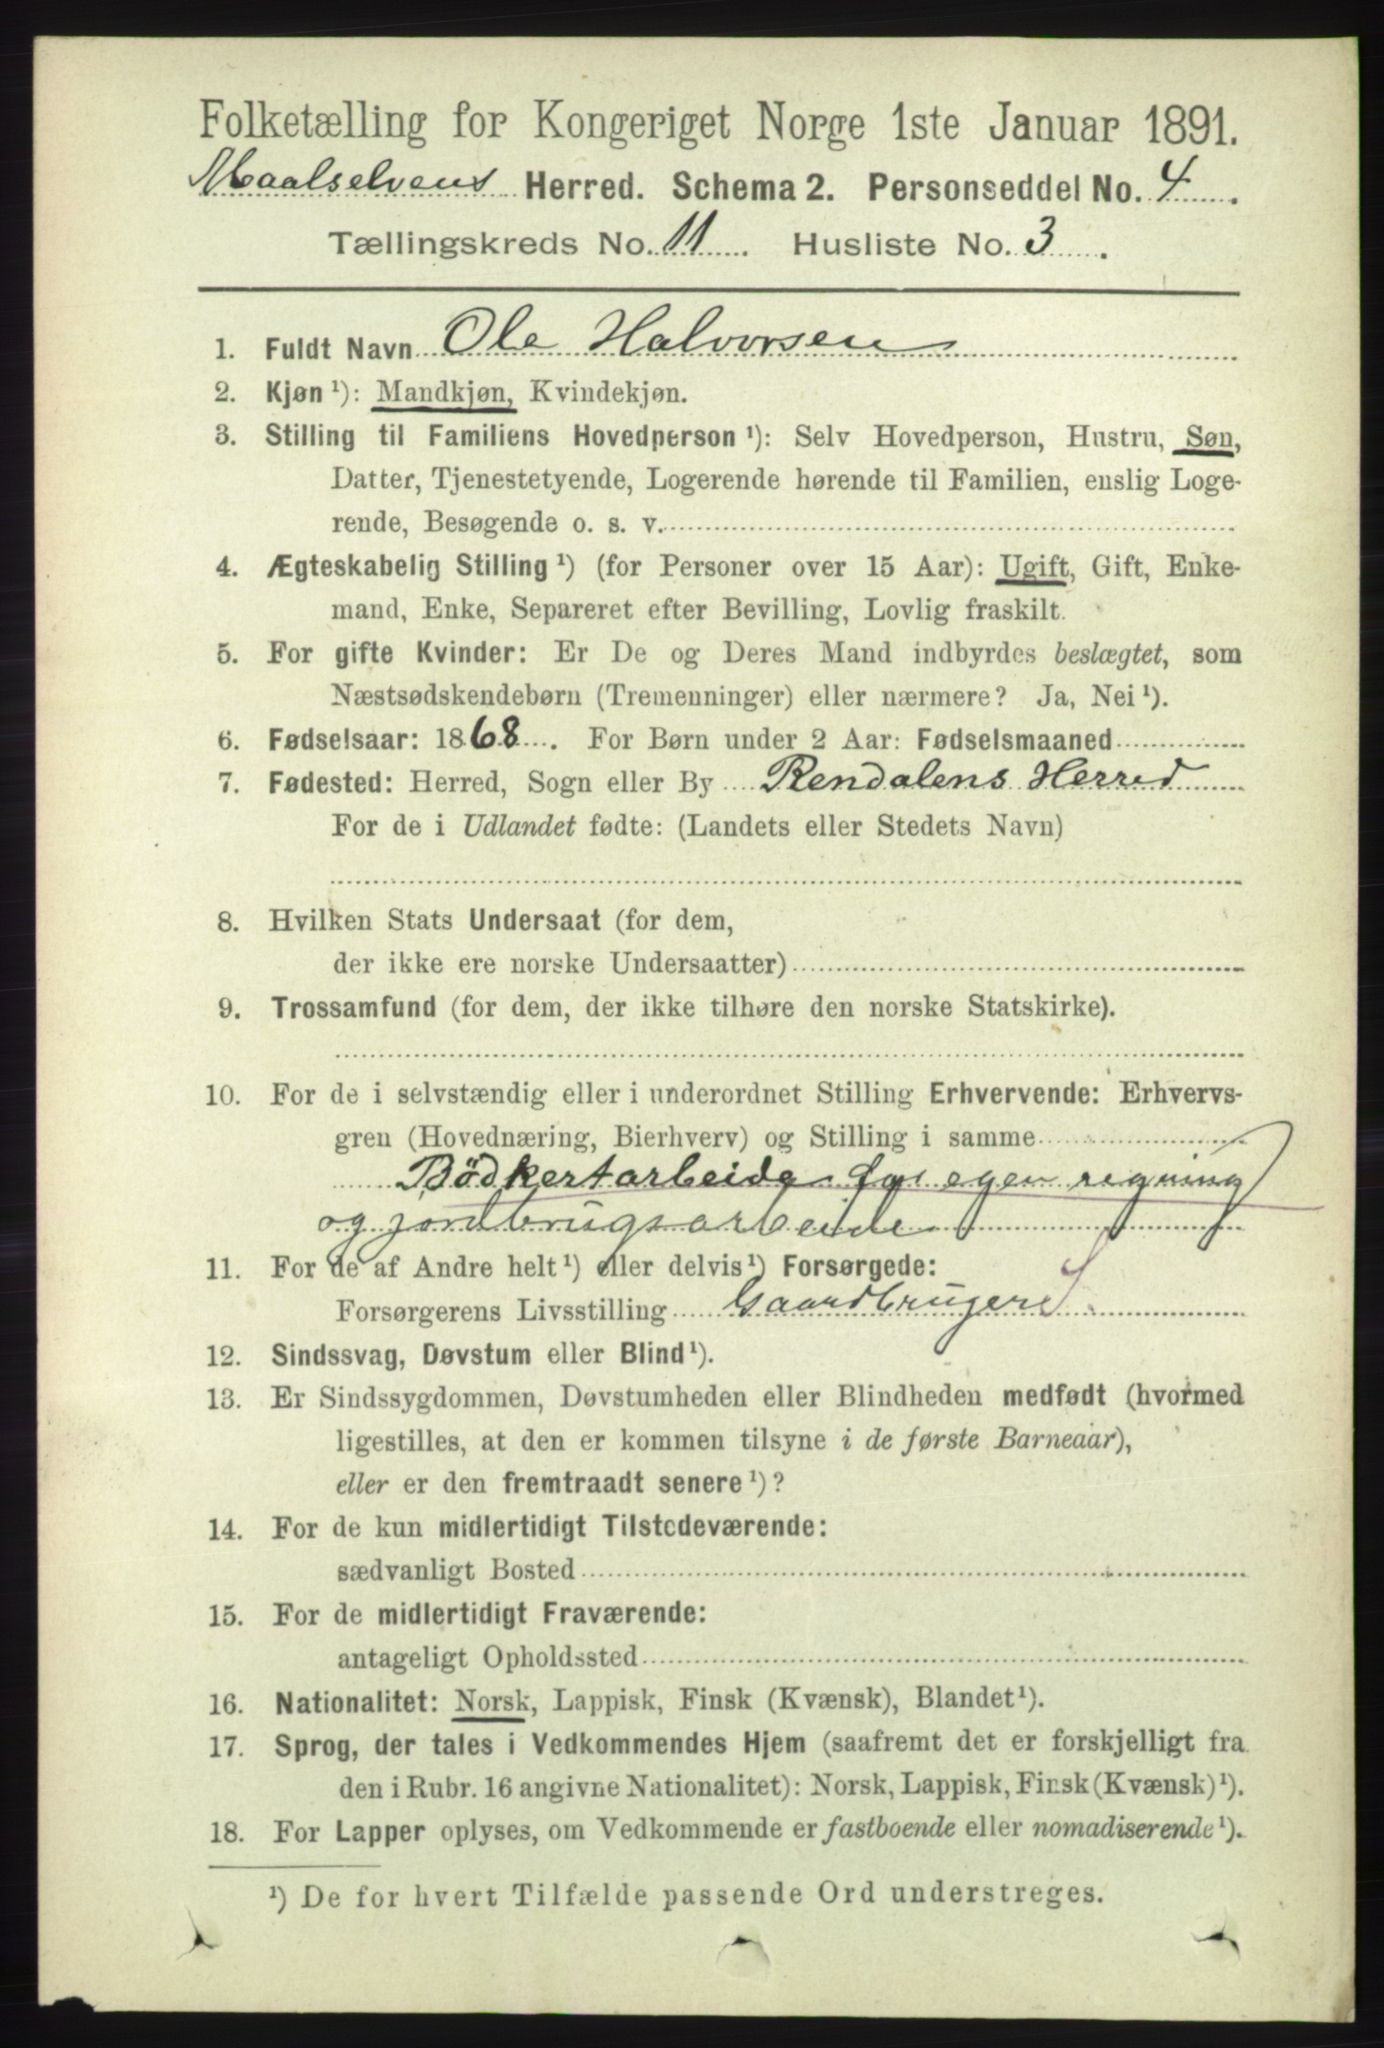 Folketælling for Kongeriget Norge 1ste Januar 1891.
Maalselvens Herred. Schema 2. Personseddel No. 4.
Tællingskreds No. 11. Husliste No. 3.
1. Fuldt Navn Ole Halvorsen
2. Kjøn ¹): Mandkjøn, Kvindekjøn.
3. Stilling til Familiens Hovedperson ¹): Selv Hovedperson, Hustru, Søn,
Datter, Tjenestetyende, Logerende hørende til Familien, enslig Loge-
rende, Besøgende o. s. v.
4. Ægteskabelig Stilling ¹) (for Personer over 15 Aar): Ugift, Gift, Enke-
mand, Enke, Separeret efter Bevilling, Lovlig fraskilt.
5. For gifte Kvinder: Er De og Deres Mand indbyrdes beslægtet, som
Næstsødskendebørn (Tremenninger) eller nærmere? Ja, Nei ¹).
6. Fødselsaar: 1868. For Børn under 2 Aar: Fødselsmaaned
7. Fødested: Herred, Sogn eller By Rendalens Herred
For de i Udlandet fødte: (Landets eller Stedets Navn)
8. Hvilken Stats Undersaat (for dem,
der ikke ere norske Undersaatter)
9. Trossamfund (for dem, der ikke tilhøre den norske Statskirke).
10. For de i selvstændig eller i underordnet Stilling Erhvervende: Erhvervs-
gren (Hovednæring, Bierhverv) og Stilling i samme
Bödkertarbeide for egen regning
og jordbrugsarbeide
11. For de af Andre helt ¹) eller delvis ¹) Forsørgede:
Forsørgerens Livsstilling Gaardbruger S.
12. Sindssvag, Døvstum eller Blind ¹).
13. Er Sindssygdommen, Døvstumheden eller Blindheden medfødt (hvormed
ligestilles, at den er kommen tilsyne i de første Barneaar),
eller er den fremtraadt senere ¹)?
14. For de kun midlertidigt Tilstedeværende:
sædvanligt Bosted
15. For de midlertidigt Fraværende:
antageligt Opholdssted
16. Nationalitet: Norsk, Lappisk, Finsk (Kvænsk), Blandet ¹).
17. Sprog, der tales i Vedkommendes Hjem (saafremt det er forskjelligt fra
den i Rubr. 16 angivne Nationalitet): Norsk, Lappisk, Finsk (Kvænsk) ¹).
18. For Lapper oplyses, om Vedkommende er fastboende eller nomadiserende ¹).
¹) De for hvert Tilfælde passende Ord understreges.